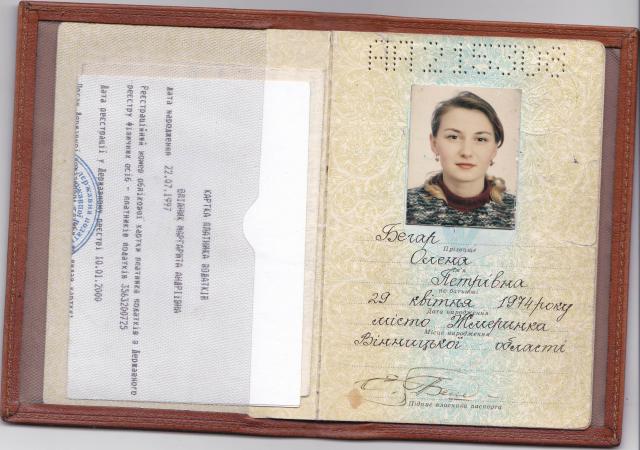 КАРТКА ПЛАТНИКА ПОДАТКІВ
МАРГАРИТА АНДРІЇВНА
дата народження 22.07.1997
Реєстраційний номер облікової картки платника податків з Державного
реєстру фізичних осіб - платників податків 3563200725
Дата реєстрації у Державному реєстрі 10.01.2000
Бегар
Прізвище
Олена
Ім'я
Петрівна
по батькові
29 квітня 1974 року
Дата народження
місто Жмеринка
Місце народження
Вінницької області
Підпис власника паспорта